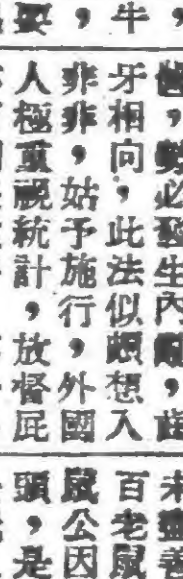 牛,
,
要
齒,勢必發生內鬨,齒
牙相向,此法似頗想入
非非,姑予施行,外國
人極重視統計,放督屁
未盡善
百老鼠
鼠公因
頭,是